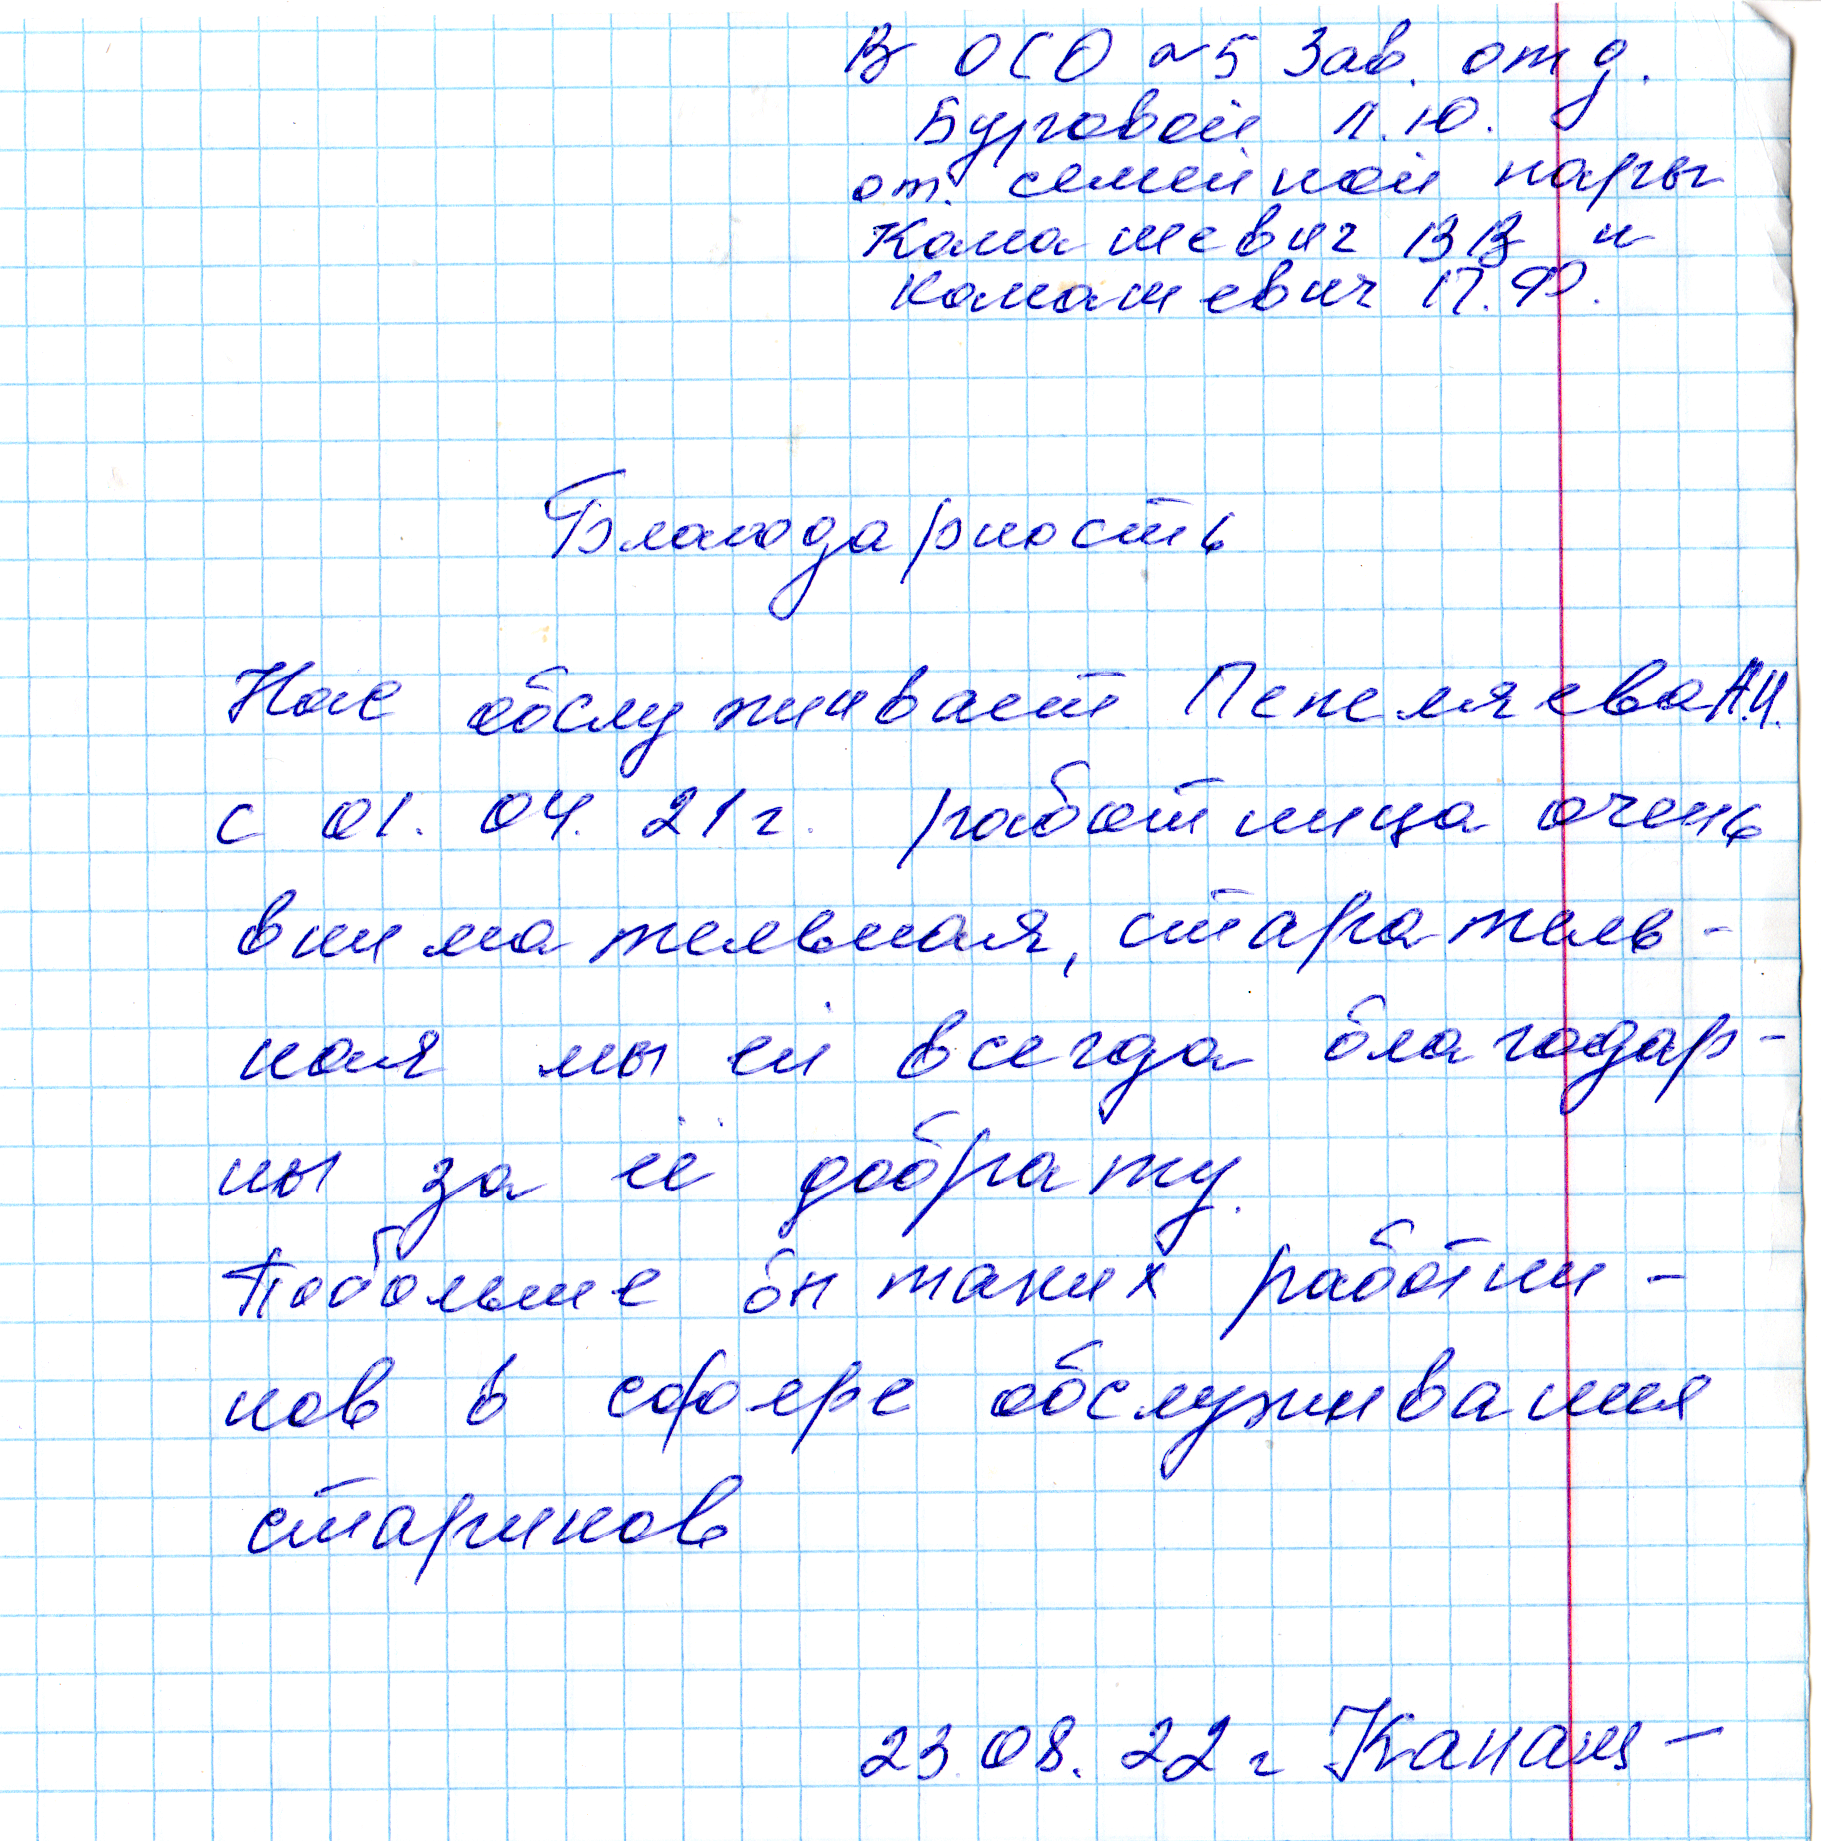 В ОСО №5 Зав. отд.
Бурговой Л.Ю.
от. семейной пары
Канашевич В В и
Канашевич П.Ф.
Благодарность
Нас обслуживает Пепеляева А.И.
с 01.04.21г. работница очень
внимательная, старатель-
ная мы ей всегда благодар-
ны за её доброту.
Побольше бы таких работни-
ков в сфере обслуживания
стариков
23.08.22г Канаш-